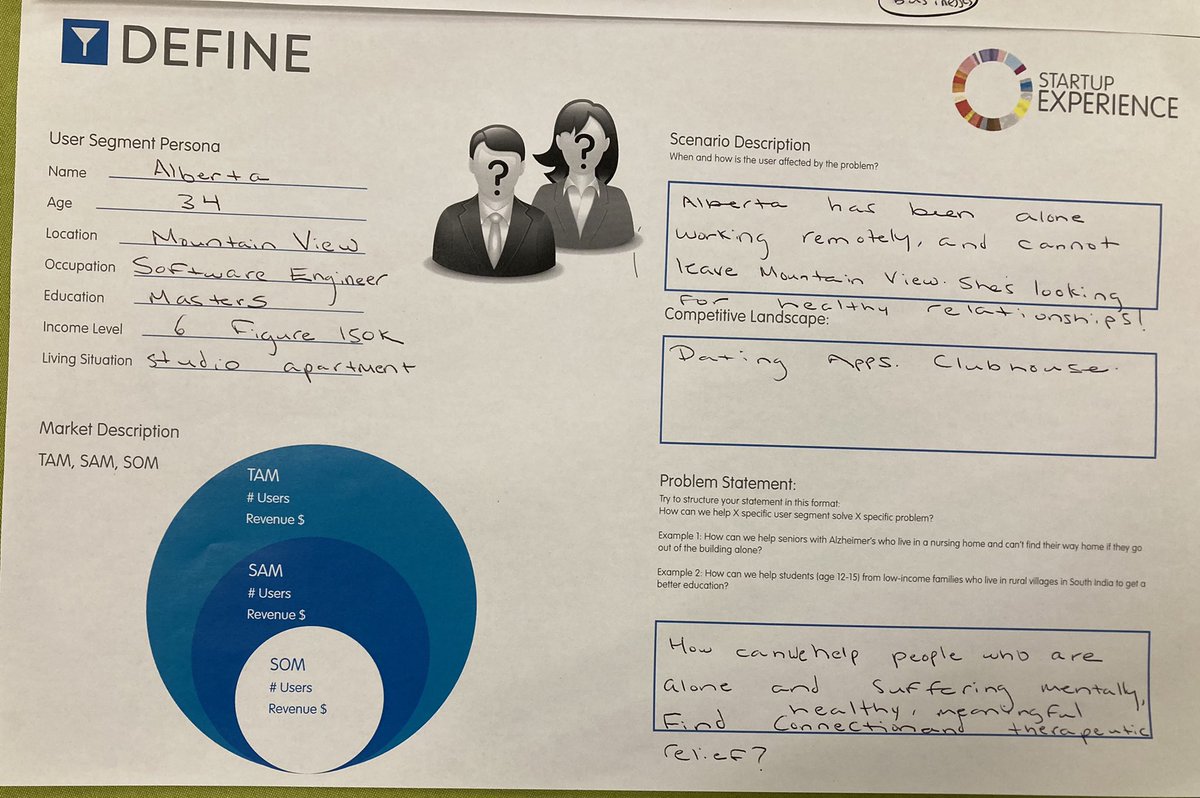 Businesses
DEFINE
STARTUP
EXPERIENCE
User Segment Persona
Name Alberta
Age 34
Location Mountain View
Occupation Software Engineer
Education Masters
Income Level 6 Figure 150K
Living Situation studio apartment
Market Description
TAM, SAM, SOM
TAM
# Users
Revenue $
SAM
# Users
Revenue $
SOM
# Users
Revenue $
? ?
Scenario Description
When and how is the user affected by the problem?
Alberta has been alone
working remotely, and cannot
leave Mountain View. She's looking
for healthy relationships!
Competitive Landscape:
Dating Apps. Clubhouse.
Problem Statement:
Try to structure your statement in this format:
How can we help X specific user segment solve X specific problem?
Example 1: How can we help seniors with Alzheimer's who live in a nursing home and can't find their way home if they go
out of the building alone?
Example 2: How can we help students (age 12-15) from low-income families who live in rural villages in South India to get a
better education?
How can we help people who are
alone and suffering mentally,
find healthy, meaningful
connection and therapeutic
relief?